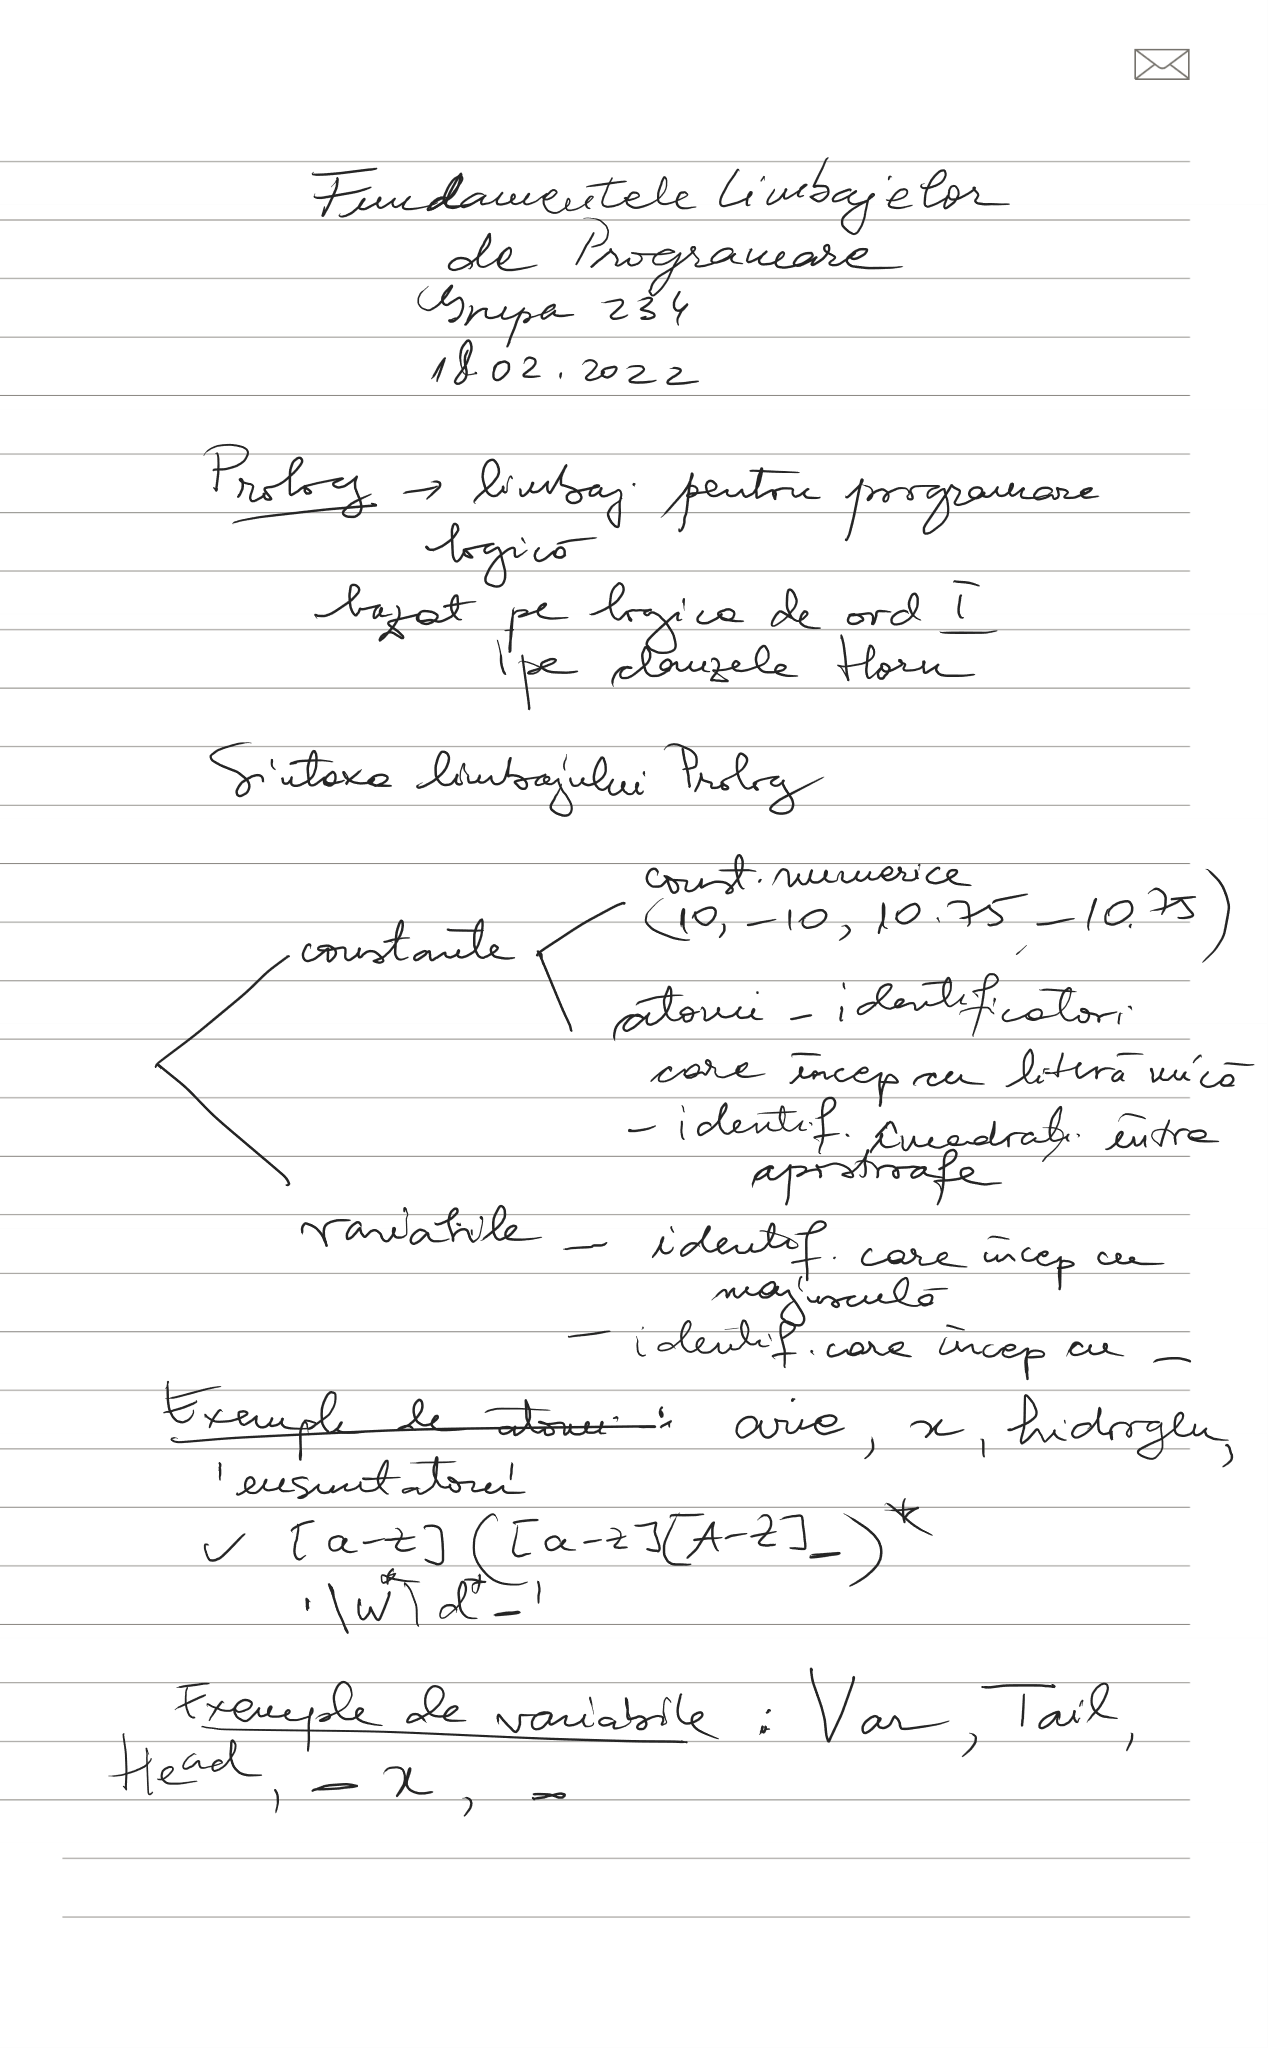 Fundamentele Limbajelor
de Programare
Grupa 234
18.02.2022
Prolog → limbaj pentru programare
logică
bazat pe logica de ord I
pe clauzele Horn
Sintaxa limbajului Prolog
const. numerice
(10, -10, 10.75, -10.75)
constante
atomi - identificatori
care încep cu literă mică
- identif. încadrați între
apostroafe
variabile - identif. care încep cu
majusculă
- identif. care încep cu _
Exemple de atomi: arie, x, hidrogen,
'eusuntatom'
✓ [a-z]([a-z][A-Z]_)*
'\w*\d*_'
Exemple de variabile: Var, Tail,
Head, _x, _